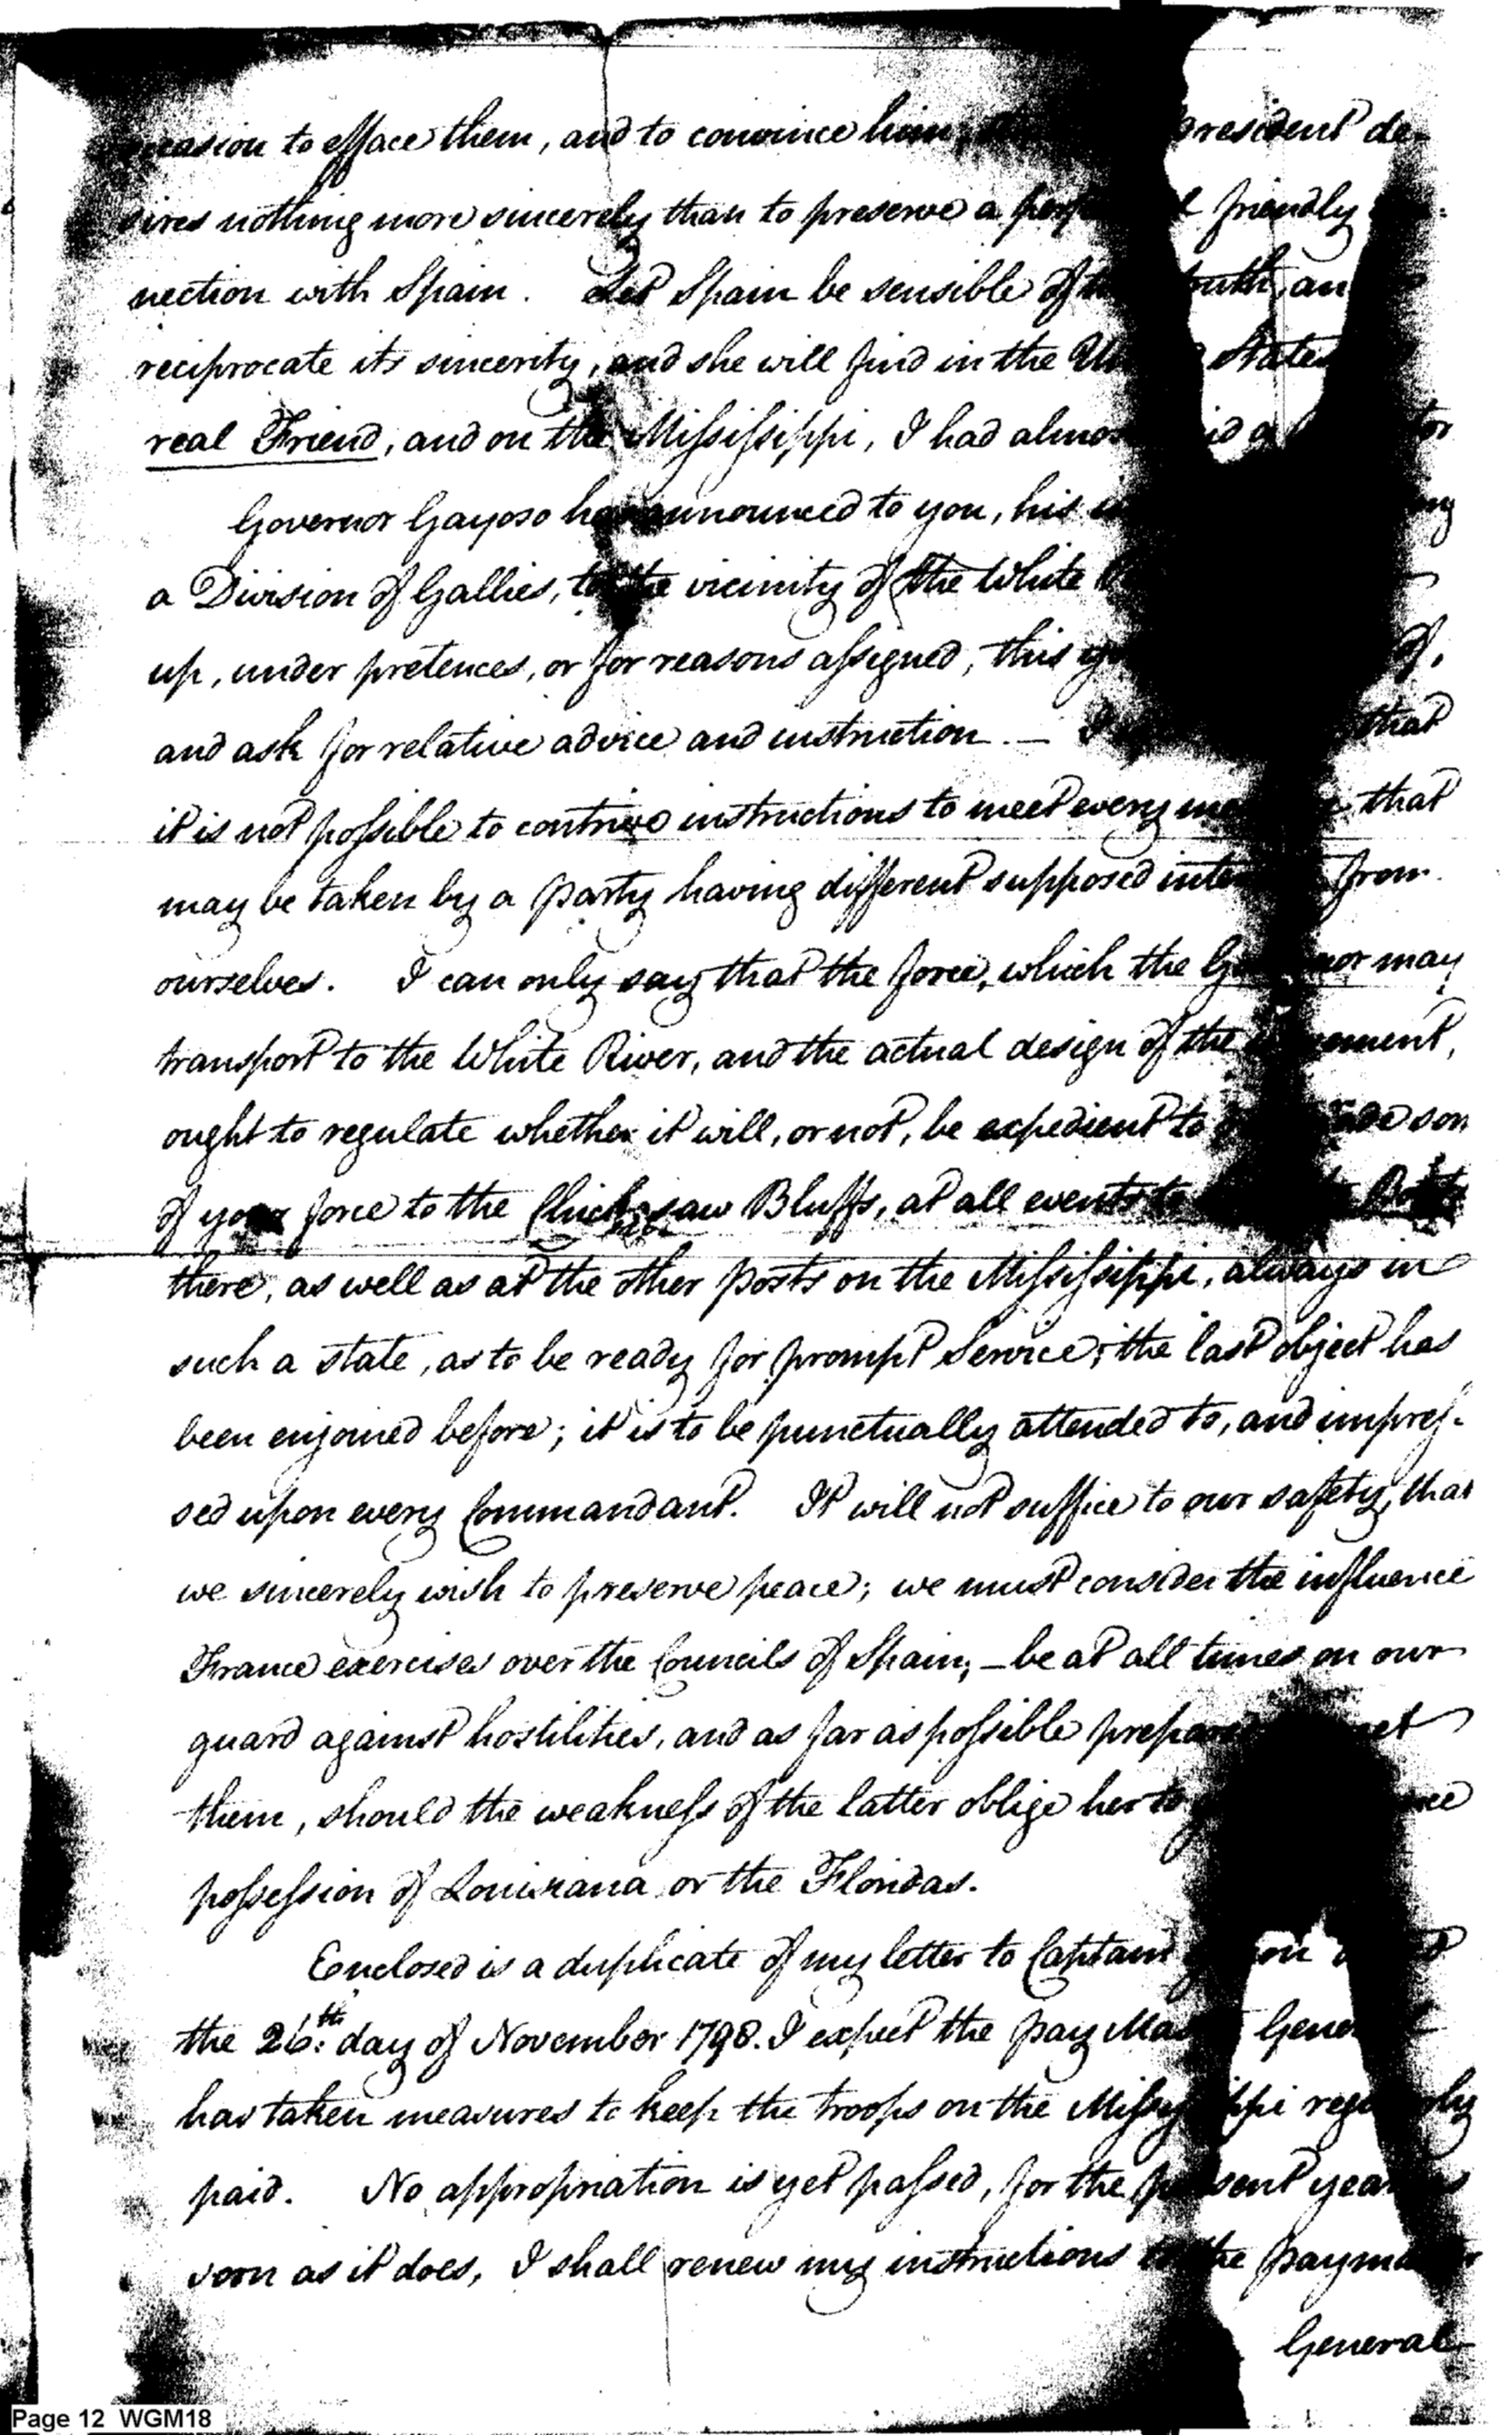 to efface them, and to convince him, President de-
sires nothing more sincerely than to preserve a friendly
nection with Spain. Let Spain be sensible of truth, an
reciprocate its sincerity, and she will find in the States
real Friend, and on the Mississippi, I had almost
Governor Gayoso has announced to you, his
a Division of Gallies, to the vicinity of the White
up, under pretences, or for reasons assigned, this
and ask for relative advice and instruction. — I that
it is not possible to contrive instructions to meet every that
may be taken by a party having different supposed from
ourselves. I can only say that the force, which the Governor may
transport to the White River, and the actual design of the
ought to regulate whether it will, or not, be expedient to som
of your force to the Chickasaw Bluffs, at all events to
there, as well as at the other posts on the Mississippi, always in
such a state, as to be ready for prompt Service; the last object has
been enjoined before; it is to be punctually attended to, and impres-
sed upon every Commandant. It will not suffice to our safety, that
we sincerely wish to preserve peace; we must consider the influence
France exercises over the Councils of Spain; — be at all times on our
guard against hostilities, and as far as possible
them, should the weakness of the latter oblige her to
possession of Louisiana or the Floridas.
Enclosed is a duplicate of my letter to Captain
the 26th. day of November 1798. I expect the pay Master General
has taken measures to keep the troops on the Mississippi regularly
paid. No appropriation is yet passed, for the present year
soon as it does, I shall renew my instructions the
General
Page 12 WGM18